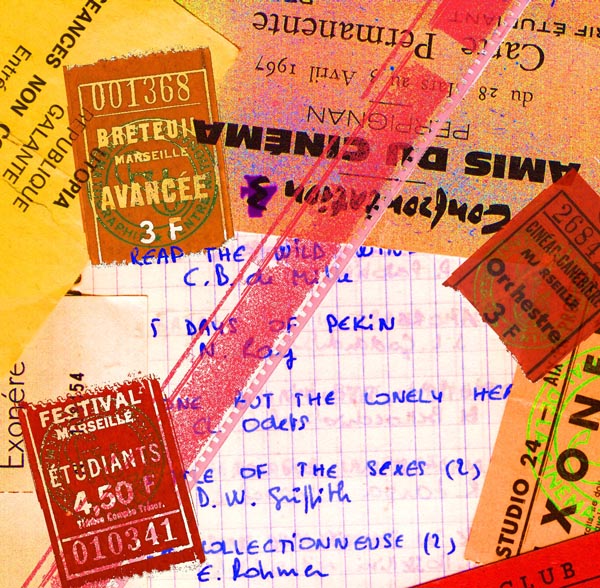 SÉANCES NON
Entré
RÉPUBLIQUE
GALANTE
UTOPIA
001368
BRETEUIL
MARSEILLE
AVANCÉE
3 F
TARIF ÉTUDIANT
Carte Permanente
du 28 Mars au 3 Avril 1967
PERPIGNAN
AMIS DU CINÉMA
Confrontation 3
REAP THE WILD WIN
C.B. de Mille
5 DAYS OF PEKIN
N. Ray
NE BUT THE LONELY HEA
Cl. Odets
LE OF THE SEXES (2)
D. W. Griffith
COLLECTIONNEUSE (2)
E. Rohmer
2684
MARSEILLE
Orchestre
3 F
Exonéré
54
FESTIVAL
MARSEILLE
ÉTUDIANTS
4,50 F
Timbre Compte Trésor.
010341
STUDIO 24 — AIX
EXONE
CLUB